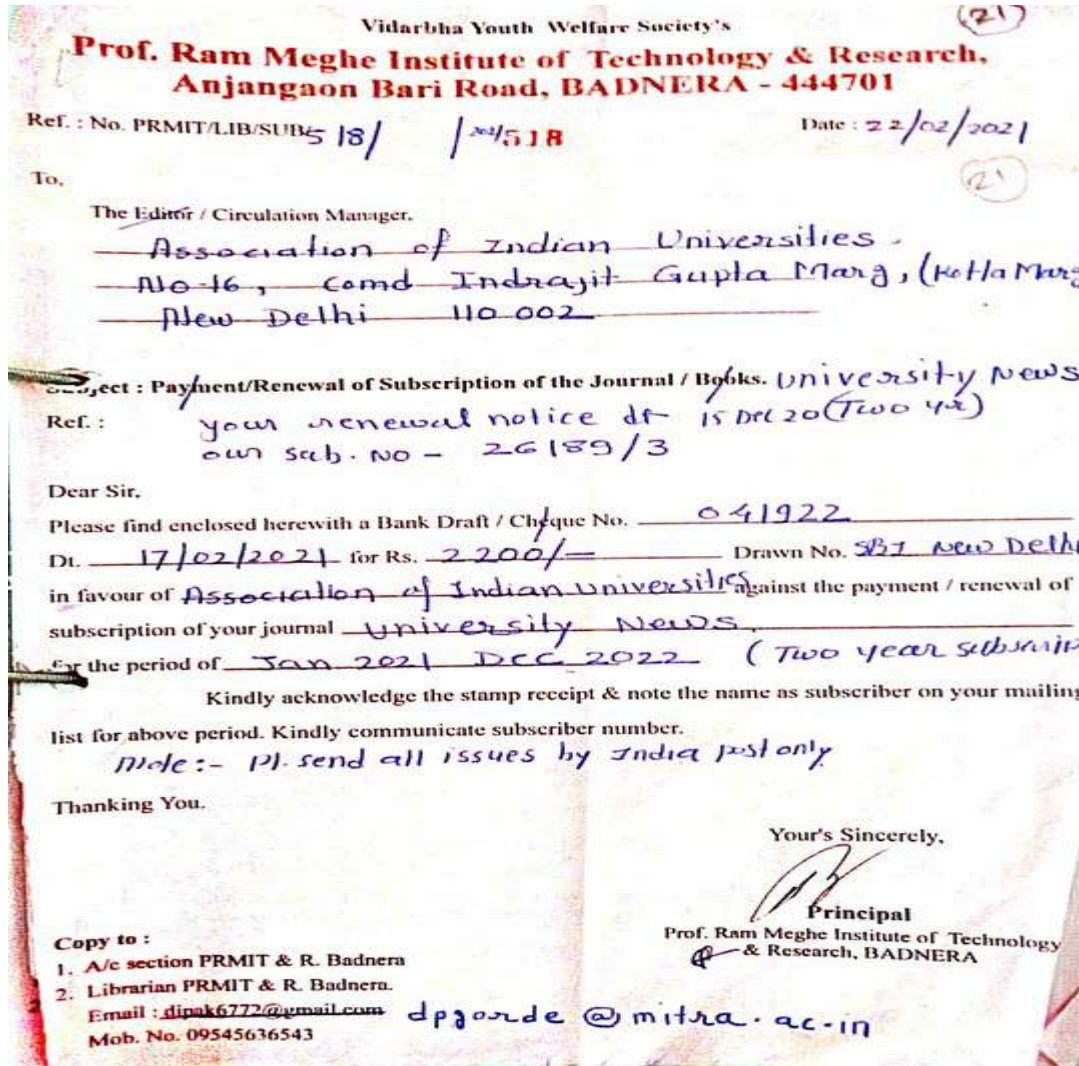 (21)
Vidarbha Youth Welfare Society's
Prof. Ram Meghe Institute of Technology & Research,
Anjangaon Bari Road, BADNERA - 444701
Ref. : No. PRMIT/LIB/SUB/518/ /2021/518 Date : 22/02/2021
(21)
To,
The Editor / Circulation Manager,
Association of Indian Universities.
No-16, Comd Indrajit Gupta Marg, (Kotla Marg
New Delhi 110 002
Subject : Payment/Renewal of Subscription of the Journal / Books. University News
Ref. : your renewal notice dt 15 Dec 20 (Two yr)
our sub. No - 26189/3
Dear Sir,
Please find enclosed herewith a Bank Draft / Cheque No. 041922
Dt. 17/02/2021 for Rs. 2200/= Drawn No. SBI New Delhi
in favour of Association of Indian Universities against the payment / renewal of
subscription of your journal University News.
for the period of Jan 2021 Dec 2022 (Two year subscrip
Kindly acknowledge the stamp receipt & note the name as subscriber on your mailing
list for above period. Kindly communicate subscriber number.
Note :- Pl. send all issues by India post only
Thanking You.
Your's Sincerely,
Principal
Prof. Ram Meghe Institute of Technology
& Research, BADNERA
Copy to :
1. A/c section PRMIT & R. Badnera
2. Librarian PRMIT & R. Badnera.
Email : dipak6772@gmail.com dpgorde @ mitra.ac.in
Mob. No. 09545636543